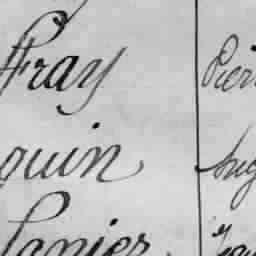 Fray Pier
quin Aug
lanier